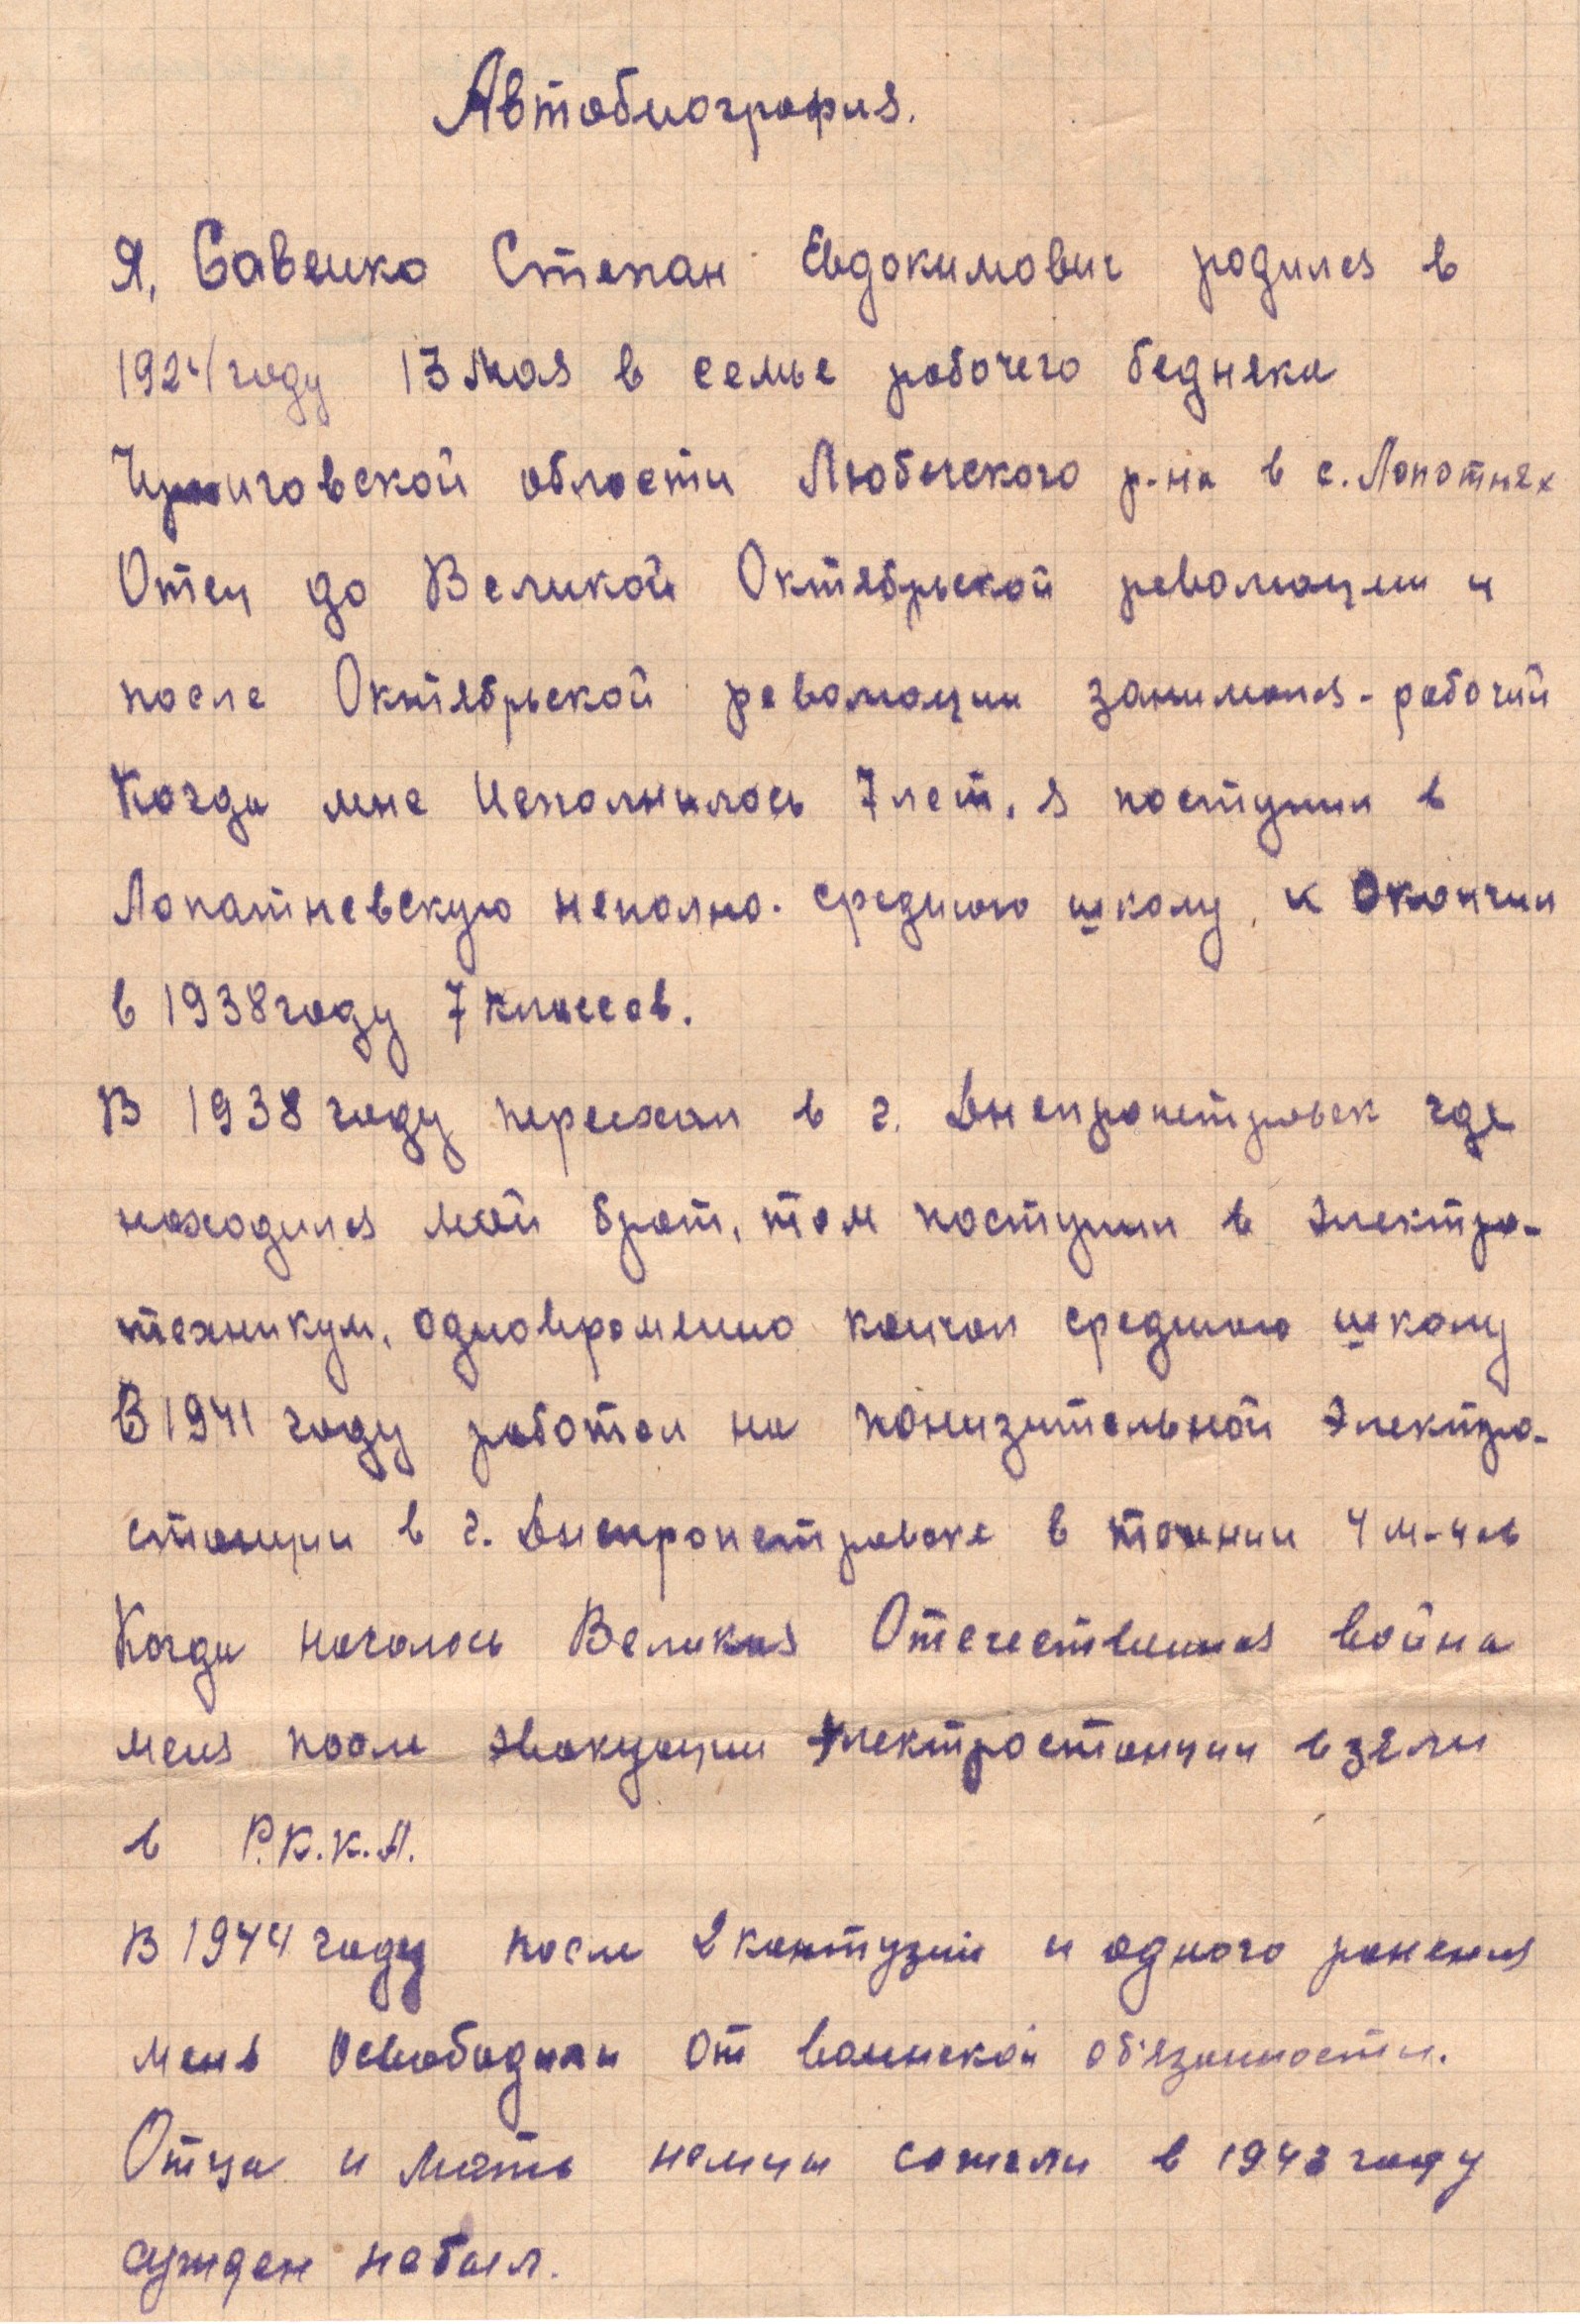 Автобиография.
Я, Савенко Степан Евдокимович родился в
1924 году 13 мая в семье рабочего бедняка
Черниговской области Любечского р-на в с. Лопотнях
Отец до Великой Октябрьской революции и
после Октябрьской революции занимался - рабочий
Когда мне Исполнилось 7 лет, я поступил в
Лопатневскую неполно. среднюю школу, и окончил
в 1938 году 7 классов.
В 1938 году переехал в г. Днепропетровск где
находился мой брат, там поступил в электро-
техникум, одновременно кончал среднюю школу
В 1941 году работал на понизительной электро-
станции в г. Днепропетровске в течении 4 м-цев
Когда началась Великая Отечественная война
меня после эвакуации электростанции взяли
в Р.К.К.А.
В 1944 году после 2 контузий и одного ранения
меня освободили от воинской обязанности.
Отца и Мать немцы сожгли в 1943 году
сужден небыл.